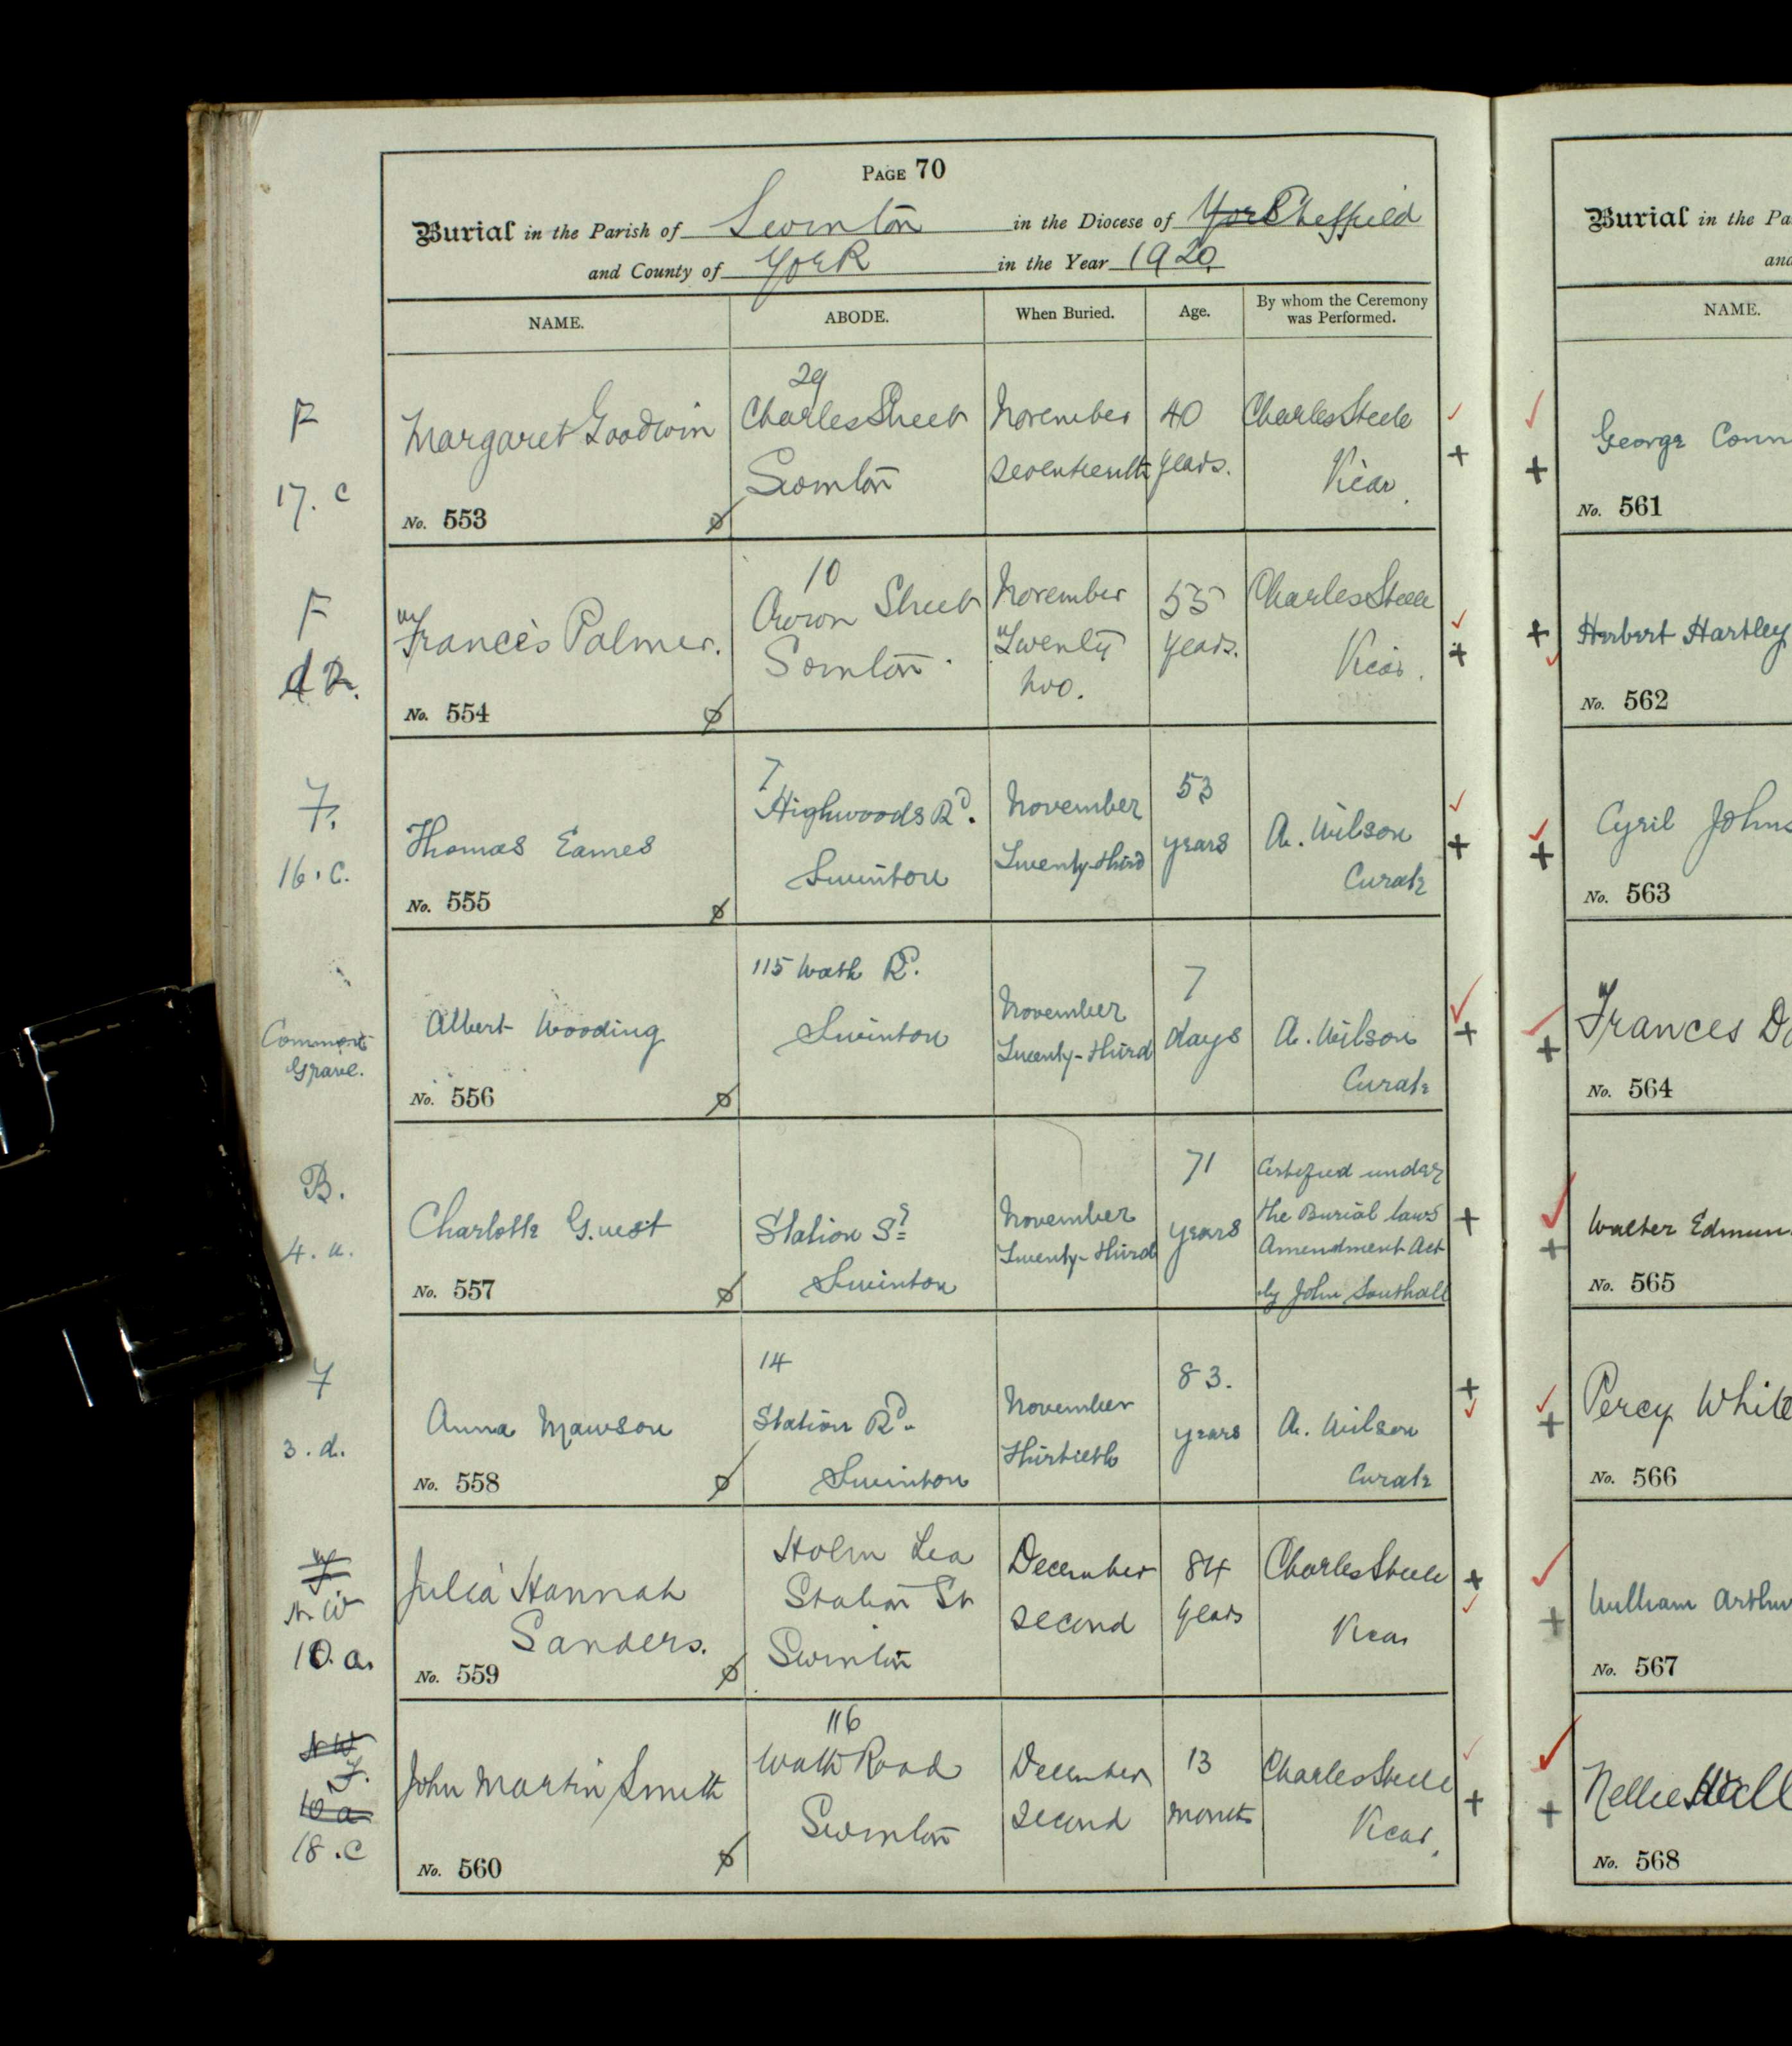 PAGE 70
Burial in the Parish of Swinton in the Diocese of York Sheffield
and County of York in the Year 1920
NAME. ABODE. When Buried. Age. By whom the Ceremony was Performed.
F
17. c
Margaret Goodwin
No. 553
29
Charles Street
Swinton
November
seventeenth
40
years.
Charles Steele
Vicar.
F
d 2.
Frances Palmer.
No. 554
10
Avon Street
Swinton.
November
Twenty
two.
55
years.
Charles Steele
Vicar.
F.
16. c.
Thomas Eames
No. 555
7
Highwoods Rd.
Swinton
November
Twenty-third
53
years
A. Wilson
Curate
Common
Grave.
Albert Wooding
No. 556
115 Wath Rd.
Swinton
November
Twenty-third
7
days
A. Wilson
Curate
B.
4. a.
Charlotte Guest
No. 557
Station St
Swinton
November
Twenty-third
71
years
Certified under
the Burial laws
Amendment Act
by John Southall
F
3. d.
Anna Mawson
No. 558
14
Station Rd.
Swinton
November
Thirtieth
83.
years
A. Wilson
Curate
F.
N. W
10. a.
Julia Hannah
Sanders.
No. 559
Holm Lea
Station St
Swinton
December
second
84
years
Charles Steele
Vicar
N W
F.
10 a
18. c
John Martin Smith
No. 560
116
Wath Road
Swinton
December
second
13
months
Charles Steele
Vicar.
Burial in the Pa
and
NAME.
George Conn
No. 561
Herbert Hartley
No. 562
Cyril Johns
No. 563
Frances Do
No. 564
Walter Edmun
No. 565
Percy White
No. 566
William Arthu
No. 567
Nellie Hall
No. 568